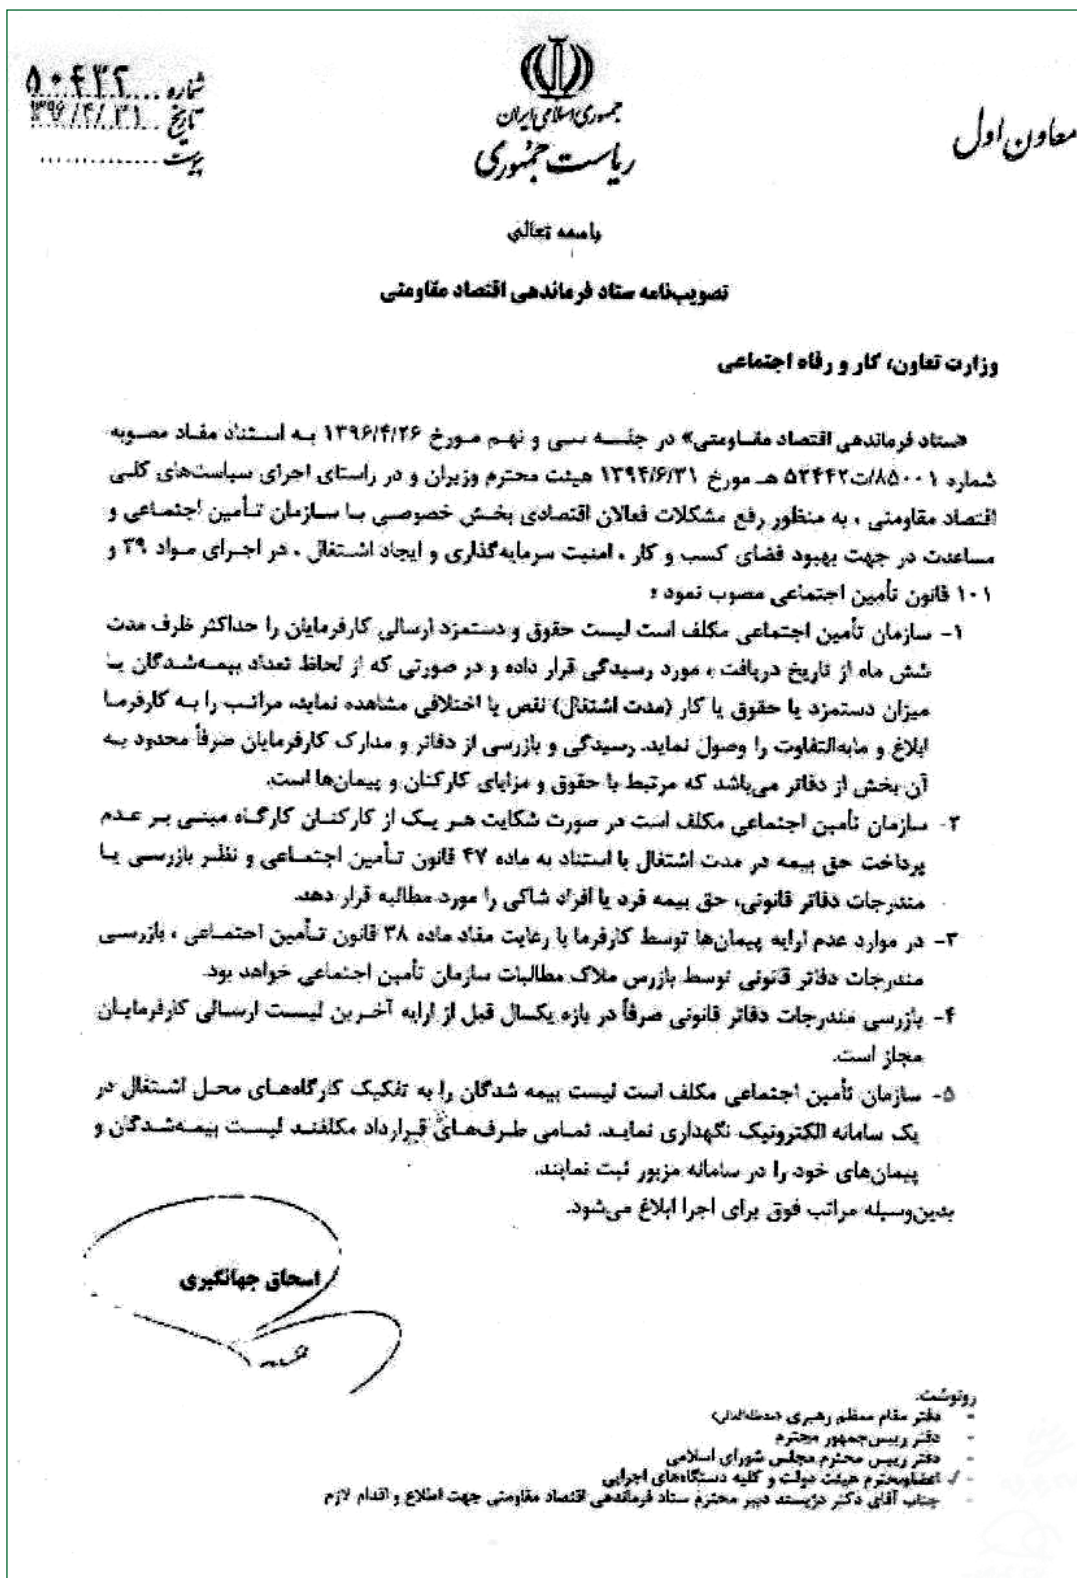 معاون اول
جمهوری اسلامی ایران
ریاست جمهوری
شماره ۵۰۴۳۲
تاریخ ۱۳۹۶/۴/۳۱
پیوست
باسمه تعالی
تصویب‌نامه ستاد فرماندهی اقتصاد مقاومتی
وزارت تعاون، کار و رفاه اجتماعی
«ستاد فرماندهی اقتصاد مقـاومتی» در جلـسـه سـی و نهـم مـورخ ۱۳۹۶/۴/۲۶ بـه اسـتناد مفـاد مصـوبه
شماره ۸۵۰۰۱/ت۵۲۴۴۲ هـ مورخ ۱۳۹۴/۶/۳۱ هیئت محترم وزیران و در راستای اجرای سیاست‌های کلـی
اقتصاد مقاومتی ، به منظور رفع مشکلات فعالان اقتصادی بخـش خصوصـی بـا سـازمان تـأمین اجتمـاعی و
مساعدت در جهت بهبود فضای کسب و کار ، امنیت سرمایه‌گذاری و ایجاد اشـتغال ، در اجـرای مـواد ۳۹ و
۱۰۱ قانون تأمین اجتماعی مصوب نمود :
۱- سازمان تأمین اجتماعی مکلف است لیست حقوق و دستمزد ارسالی کارفرمایان را حداکثر ظرف مدت
شش ماه از تاریخ دریافت ، مورد رسیدگی قرار داده و در صورتی که از لحاظ تعداد بیمـه‌شـدگان یـا
میزان دستمزد یا حقوق یا کار (مدت اشتغال) نقص یا اختلافی مشاهده نماید، مراتـب را بـه کارفرمـا
ابلاغ و مابه‌التفاوت را وصول نماید. رسیدگی و بازرسی از دفاتر و مدارک کارفرمایان صرفاً محدود بـه
آن بخش از دفاتر می‌باشد که مرتبط با حقوق و مزایای کارکنان و پیمان‌ها است.
۲- سازمان تأمین اجتماعی مکلف است در صورت شکایت هـر یـک از کارکنـان کارگـاه مبنـی بـر عـدم
پرداخت حق بیمه در مدت اشتغال با استناد به ماده ۴۷ قانون تـأمین اجتمـاعی و نظـر بازرسـی یـا
مندرجات دفاتر قانونی، حق بیمه فرد یا افراد شاکی را مورد مطالبه قرار دهد.
۳- در موارد عدم ارایه پیمان‌ها توسط کارفرما با رعایت مفاد ماده ۳۸ قانون تـأمین اجتمـاعی ، بازرسـی
مندرجات دفاتر قانونی توسط بازرس ملاک مطالبات سازمان تأمین اجتماعی خواهد بود.
۴- بازرسی مندرجات دفاتر قانونی صرفاً در بازه یکسال قبل از ارایه آخـرین لیسـت ارسـالی کارفرمایـان
مجاز است.
۵- سازمان تأمین اجتماعی مکلف است لیست بیمه شدگان را به تفکیک کارگاه‌هـای محـل اشـتغال در
یک سامانه الکترونیک نگهداری نمایـد. تمـامی طـرف‌هـای قـرارداد مکلفنـد لیسـت بیمـه‌شـدگان و
پیمان‌های خود را در سامانه مزبور ثبت نمایند.
بدین‌وسیله مراتب فوق برای اجرا ابلاغ می‌شود.
اسحاق جهانگیری
رونوشت:
- دفتر مقام معظم رهبری (مدظله‌العالی)
- دفتر رییس‌جمهور محترم
- دفتر رییس محترم مجلس شورای اسلامی
- اعضاءمحترم هیئت دولت و کلیه دستگاه‌های اجرایی
- جناب آقای دکتر دژپسند دبیر محترم ستاد فرماندهی اقتصاد مقاومتی جهت اطلاع و اقدام لازم